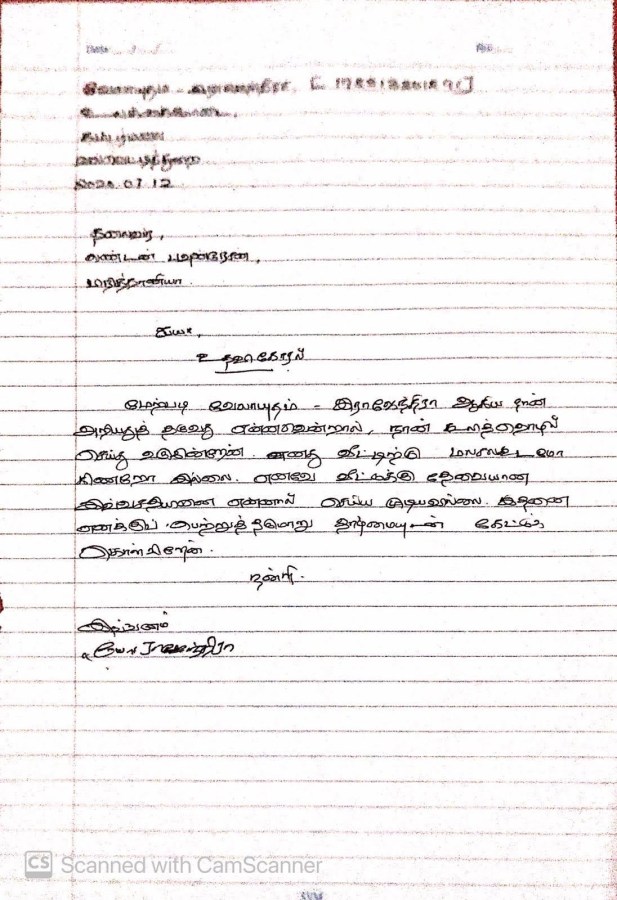 வேலாயுதம் - இராஜேந்திரா
2020.07.12
தலைவர்,
லண்டன்
பிரித்தானியா.
ஐயா,
உதவி கோரல்
மேற்படி வேலாயுதம் - இராஜேந்திரா ஆகிய நான்
அறியத் தருவது என்னவென்றால், நான் கூலித்தொழில்
செய்து வருகின்றேன். எனது வீட்டிற்கு மலசலகூடமோ
கிணறோ இல்லை. எனவே வீட்டுக்கு தேவையான
இவ்வசதியினை என்னால் செய்ய முடியவில்லை. இதனை
எனக்குப் பெற்றுத் தருமாறு தாழ்மையுடன் கேட்டுக்
கொள்கிறேன்.
நன்றி.
இவ்வணம்
CS Scanned with CamScanner